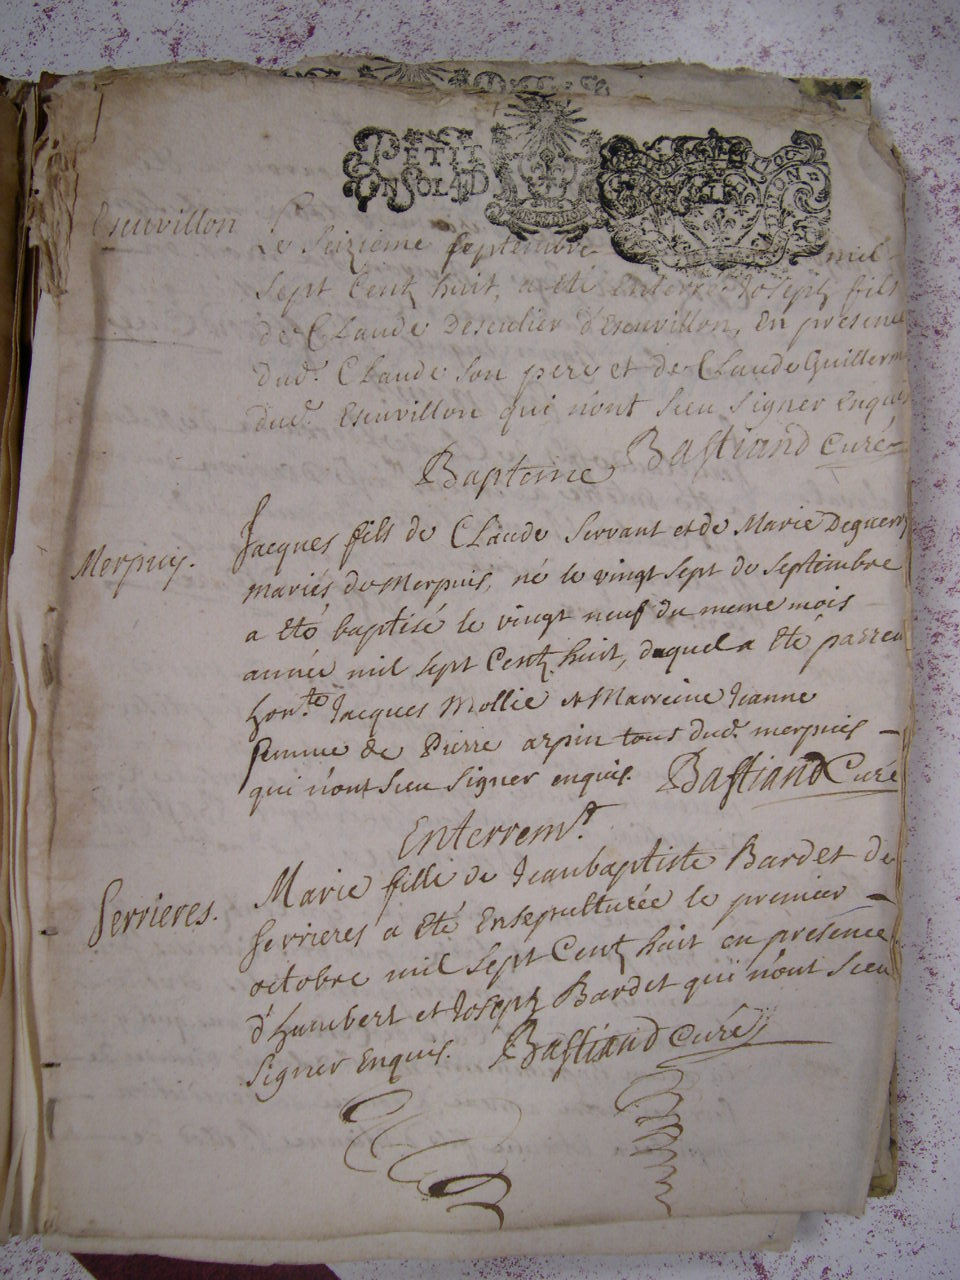 PETIT
UN SOL 4 D
Escuvillon
Le seizieme septembre mil
sept Centz huit, a eté enterré Joseph fils
de CLaude Desculier d'Escuvillon, En presence
dud. CLaude son pere et de CLaude Guillerm
dud. Escuvillon qui n'ont sceu signer Enquis
Bastiand Curé
Bapteme
Merpuis.
Jacques fils de CLaude Servant et de Marie Deguerr
mariés de Merpuis, né le vingt sept de septembre
a eté baptisé le vingt neuf du meme mois
année mil sept Centz huit, duquel a eté parren
hon.te Jacques Mollie et Marreine Jeanne
femme de Pierre arpin tous dud. merpuis
qui n'ont sceu signer enquis. Bastiand Curé
Enterrem.t
Serrieres.
Marie fille de Jeanbaptiste Bardet de
serrieres a eté Ensepulturée le premier
octobre mil sept Centz huit en presence
d'humbert et Joseph Bardet qui n'ont sceu
signer Enquis. Bastiand curé